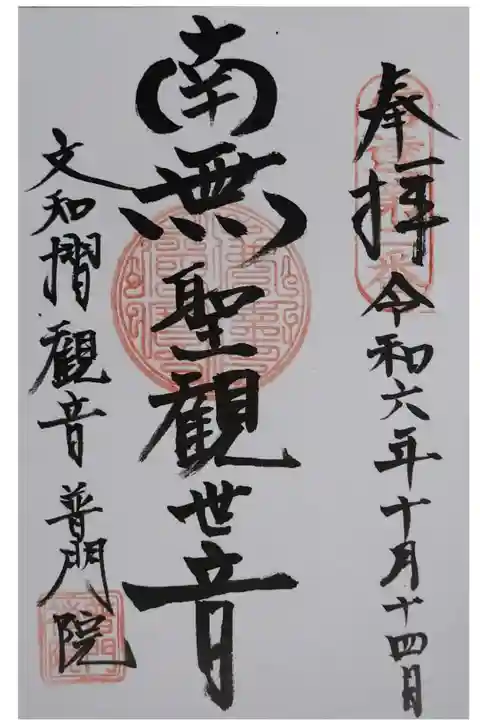 奉拝 令和六年十月十四日
南無聖観世音
文知摺観音 普門院